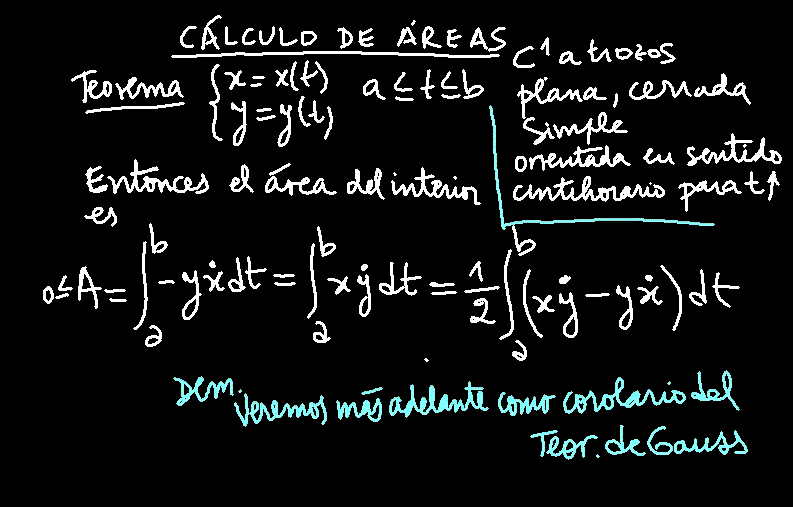 CÁLCULO DE ÁREAS
Teorema { x = x(t) a ≤ t ≤ b
y = y(t)
C¹ a trozos
plana, cerrada
simple
orientada en sentido
antihorario para t↑
Entonces el área del interior
es
0≤A = ∫_a^b -yẋdt = ∫_a^b xẏdt = 1/2 ∫_a^b (xẏ - yẋ)dt
Dem. Veremos más adelante como corolario del
Teor. de Gauss